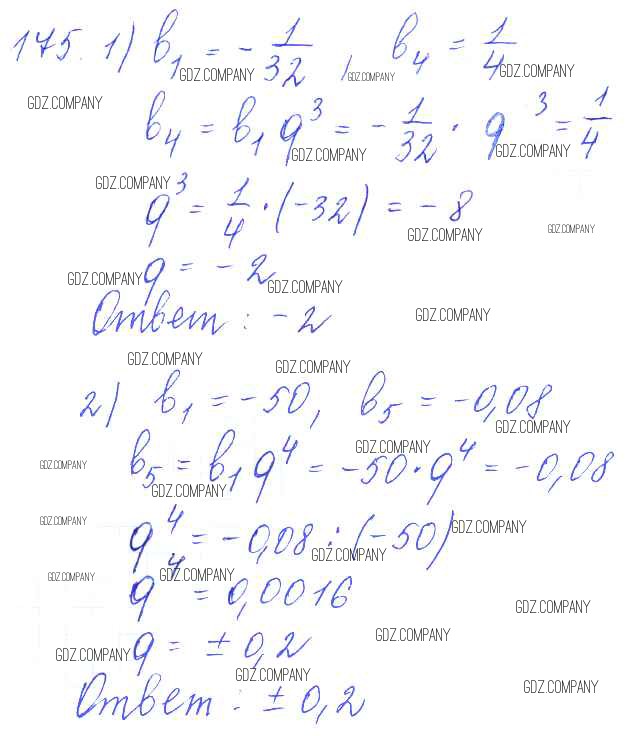 175. 1) b₁ = -1/32, b₄ = 1/4
GDZ.COMPANY GDZ.COMPANY GDZ.COMPANY
GDZ.COMPANY
b₄ = b₁q³ = -1/32 · q³ = 1/4
GDZ.COMPANY GDZ.COMPANY
GDZ.COMPANY
q³ = 1/4 · (-32) = -8
GDZ.COMPANY GDZ.COMPANY
q = -2
GDZ.COMPANY GDZ.COMPANY
Ответ: -2
GDZ.COMPANY
GDZ.COMPANY GDZ.COMPANY
2) b₁ = -50, b₅ = -0,08
GDZ.COMPANY
GDZ.COMPANY
b₅ = b₁q⁴ = -50·q⁴ = -0,08
GDZ.COMPANY GDZ.COMPANY
GDZ.COMPANY GDZ.COMPANY
q⁴ = -0,08 : (-50)
GDZ.COMPANY
GDZ.COMPANY GDZ.COMPANY
q⁴ = 0,0016
GDZ.COMPANY
GDZ.COMPANY
q = ± 0,2
GDZ.COMPANY
GDZ.COMPANY
Ответ: ± 0,2
GDZ.COMPANY